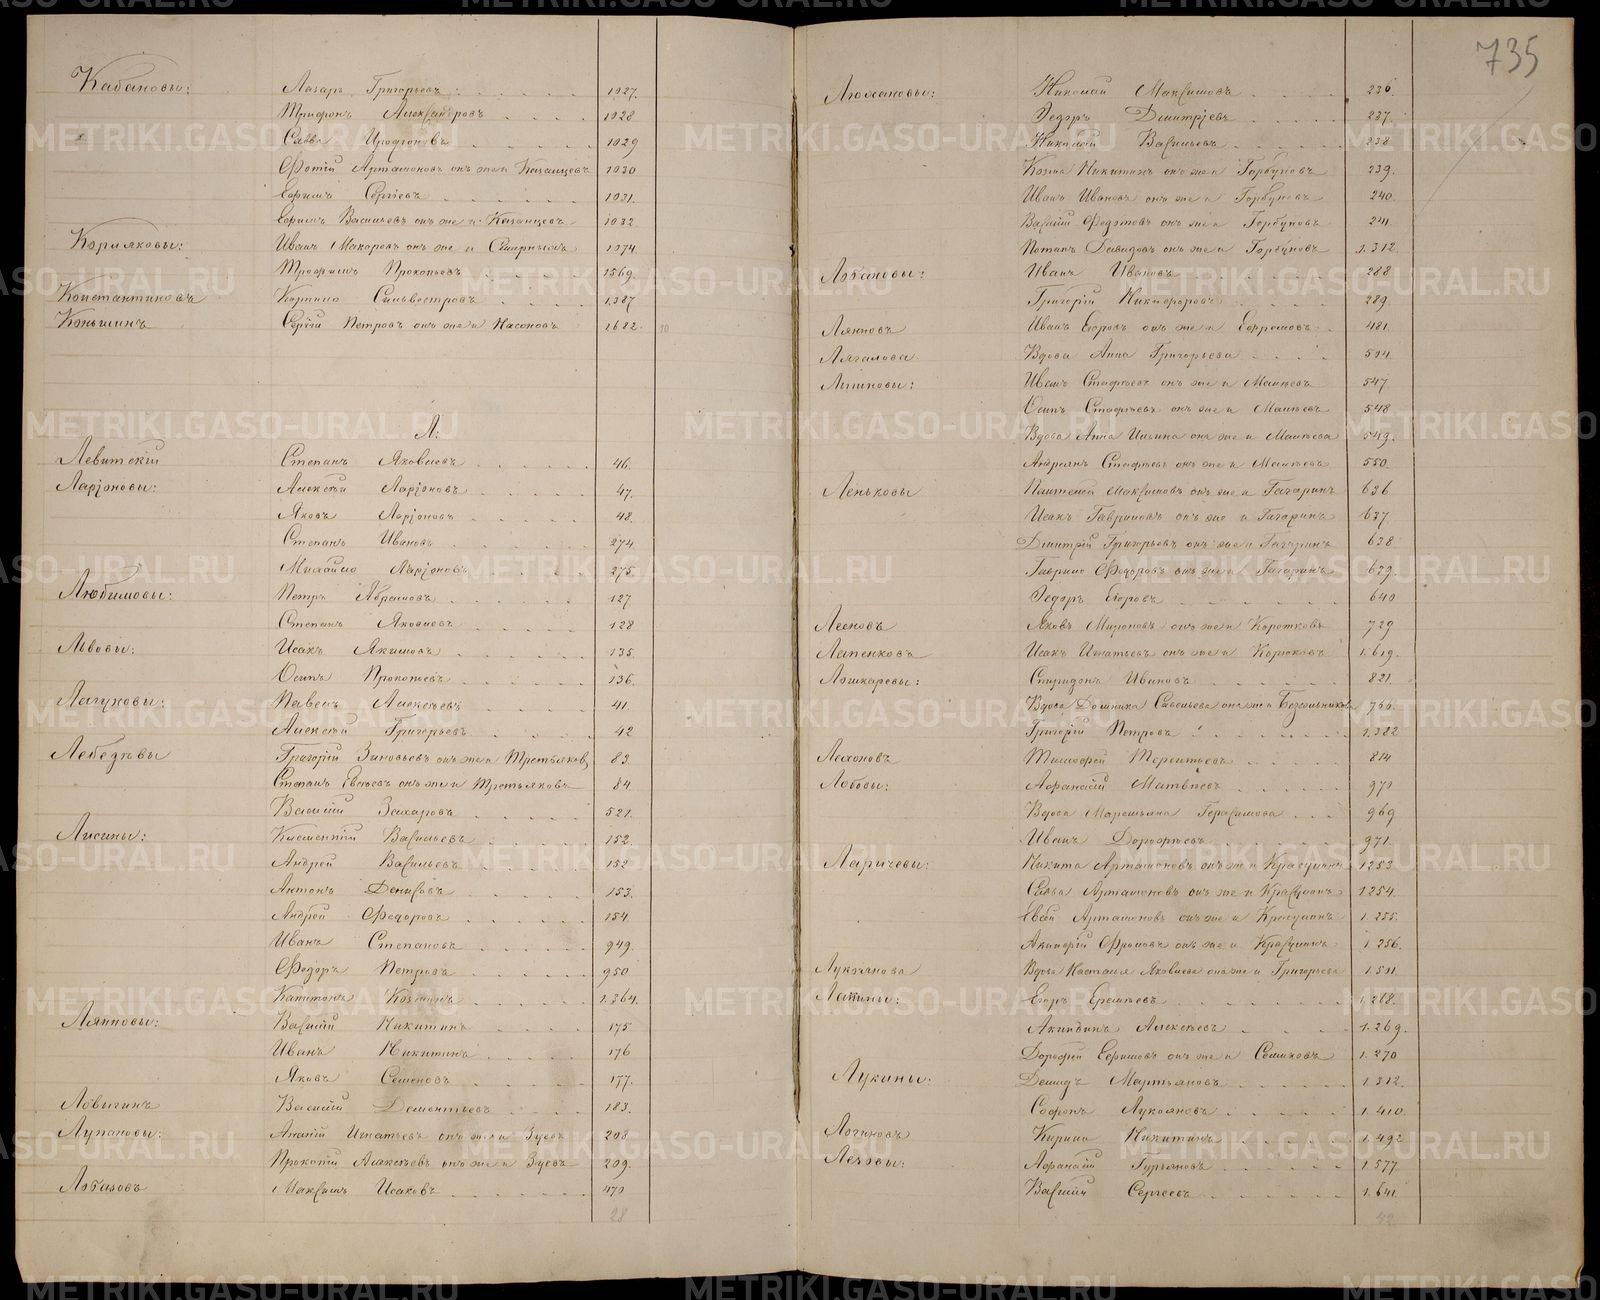 735
Кабановы: Лазарь Григорьевъ 1027.
Трифонъ Александровъ 1028
Савва Иродіоновъ 1029
Фотій Артамоновъ онъ же и Казанцевъ 1030
Ефимъ Сергѣевъ 1031.
Ефимъ Васильевъ онъ же и Казанцевъ 1032
Корляковы: Иванъ Макаровъ онъ же и Смирныхъ 1074.
Трофимъ Прокопьевъ 1569.
Константиновъ Корнило Сильвестровъ 1,387
Коньшинъ Сергій Петровъ онъ же и Насоновъ 1622. 10
Л:
Левитскій Степанъ Яковлевъ 46.
Ларіоновы: Алексѣй Ларіоновъ 47.
Яковъ Ларіоновъ 48.
Степанъ Ивановъ 274
Михайло Ларіоновъ 275.
Любимовы: Петръ Абрамовъ 127.
Степанъ Яковлевъ 128
Львовы: Исакъ Якимовъ 135.
Осипъ Прокопьевъ 136.
Лагуновы: Павелъ Алексѣевъ 41.
Алексѣй Григорьевъ 42
Лебедевы Григорій Зиновьевъ онъ же и Третьяковъ 83.
Степанъ Евсѣевъ онъ же и Третьяковъ 84.
Василій Захаровъ 521.
Лисины: Климентій Васильевъ 152.
Андрей Васильевъ 152
Антонъ Денисовъ 153.
Андрей Федоровъ 154
Иванъ Степановъ 949.
Федоръ Петровъ 950
Капитонъ Козминъ 1.364.
Ляпновы: Василій Никитинъ 175
Иванъ Никитинъ 176
Яковъ Семеновъ 177.
Ловыгинъ Василій Дементьевъ 183.
Лупановы: Ананій Игнатьевъ онъ же и Зуевъ 208.
Прокопій Алексѣевъ онъ же и Зуевъ 209.
Лобазовъ Максимъ Исаковъ 470
28
Люхановы: Николай Максимовъ 236.
Федоръ Дмитріевъ 237.
Николай Васильевъ 238
Козма Никитинъ онъ же и Горбуновъ 239.
Иванъ Ивановъ онъ же и Горбуновъ 240.
Василій Федотовъ онъ же и Горбуновъ 241.
Потапъ Давидовъ онъ же и Горбуновъ 1.312
Лобановы: Иванъ Ивановъ 288
Григорій Никифоровъ 289.
Ляпновъ Иванъ Егоровъ онъ же и Ефремовъ 481.
Лягалова Вдова Анна Григорьева 504.
Лушковы: Иванъ Стафѣевъ онъ же и Маліевъ 547
Осипъ Стафѣевъ онъ же и Маліевъ 548
Вдова Анна Ильина она же и Маліева 549.
Андреянъ Стафѣевъ онъ же и Маліевъ 550.
Леньковы Пантелей Максимовъ онъ же и Гагаринъ 636
Исакъ Гавриловъ онъ же и Гагаринъ 637.
Дмитрій Григорьевъ онъ же и Гагаринъ 638
Гаврило Федоровъ онъ же и Гагаринъ 639.
Федоръ Егоровъ 640
Лесновъ Яковъ Мироновъ онъ же и Коротковъ 729
Лапенковъ Исакъ Игнатьевъ онъ же и Корюковъ 1.619.
Лошкаревы: Спиридонъ Ивановъ 821.
Вдова Домника Савельева она же и Бездельникова 766.
Григорій Петровъ 1.382
Лехановъ Тимофей Терентьевъ 814
Лобовы: Афанасій Матвѣевъ 970
Вдова Марельяна Герасимова 969
Иванъ Дорофѣевъ 971.
Ларичевы: Никита Артамоновъ онъ же и Красулинъ 1253
Савва Артамоновъ онъ же и Красулинъ 1254.
Евсей Артамоновъ онъ же и Красулинъ 1.255.
Акинфій Фроловъ онъ же и Красулинъ 1.256.
Лукоянова Вдова Настасья Яковлева она же и Григорьева 1.501.
Лапины: Егоръ Еремѣевъ 1,268.
Акиндинъ Алексѣевъ 1.269.
Дорофей Ефимовъ онъ же и Семиковъ 1.270
Лукины: Демидъ Мартьяновъ 1.312.
Софонъ Лукояновъ 1.410.
Логиновъ Кирило Никитинъ 1.492
Лезовы: Афанасій Гурьяновъ 1.577.
Василій Сергеевъ 1.641.
42